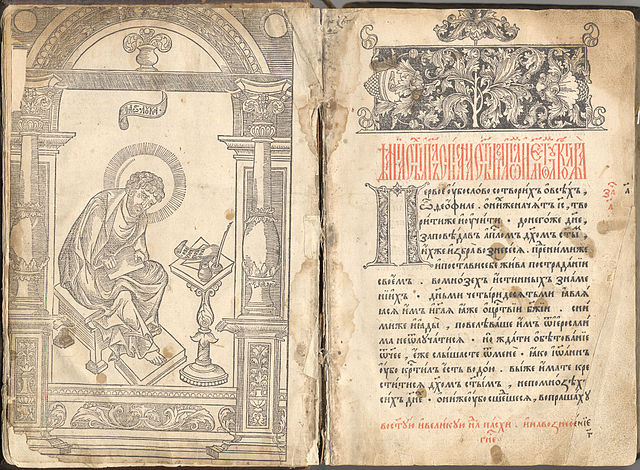 лука
Первое оубо слово сотворихъ о всѣхъ,
ѽ ѳеофиле · о нихже начатъ іс, тво
рити же и оучити · донегоже дн҃е,
заповѣдавъ апⷭ҇ломъ дх҃омъ ст҃ы,
ихже избра вознесесѧ. пред нимиже
и постави себе жива по страданїи
своемъ . во мнозѣхъ истинныхъ знаме
нїихъ · дн҃ьми четыридесѧтьми ꙗвлѧ
ꙗсѧ имъ и гл҃ѧ ꙗже о црⷭ҇твїи бж҃їи . с ни
миже и ꙗды, повелѣваше имъ ѿ іерⷭ҇али
ма не ѿлꙋчатисѧ . но ждати обѣтованїе
ѿчее, еже слышасте ѿ мене · ꙗко іоаннъ
оубо крⷭ҇тилъ есть водою . вы же имате кре
ститисѧ дх҃омъ ст҃ымъ , не по мнозѣх
сихъ дн҃е · они же оубо сшедшесѧ, вопрашахꙋ
во ст҃ꙋю и великꙋю нⷣлю пасхи . и на вознесенїе
гн҃е